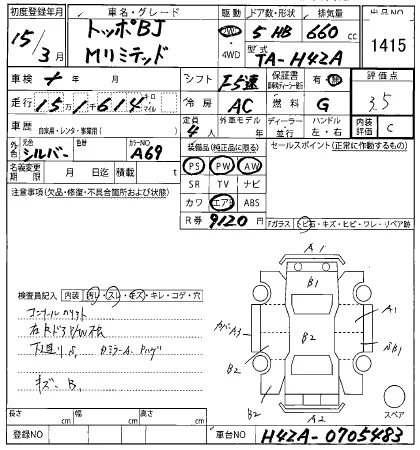 初度登録年月 車名・グレード 駆動 ドア数・形状 排気量 出品NO
15年 トッポBJ 2WD 5 HB 660 cc
3月 Mリミテッド 4WD 型式 TA-H42A 1415
車検 年 月 シフト F5速 保証書 有 無 評価点
走行 15万1614 キロ マイル 冷房 AC 燃料 G 3.5
車歴 自家用・レンタ・事業用( ) 定員 4人 外車モデル 年 ディーラー・並行 ハンドル 左・右 内装評価 C
外色 元色 シルバー 色替 カラーNO A69 装備品(純正品に限る) セールスポイント(正常に作動するもの)
名義変更期限 月 日迄 積載 t PS PW AW
注意事項(欠品・修復・不具合箇所および状態) SR TV ナビ
カワ エアB
R券 9120円 「ガラス トビ石・キズ・ヒビ・ワレ・リペア跡
A1
B1
検査員記入 内装 汚レ・スレ・キズ・キレ・コゲ・穴
A1
B2
B2
B2
A2
キズ、B、
スペア
長さ cm 幅 cm 高さ cm
登録NO 車台NO H42A-0705483